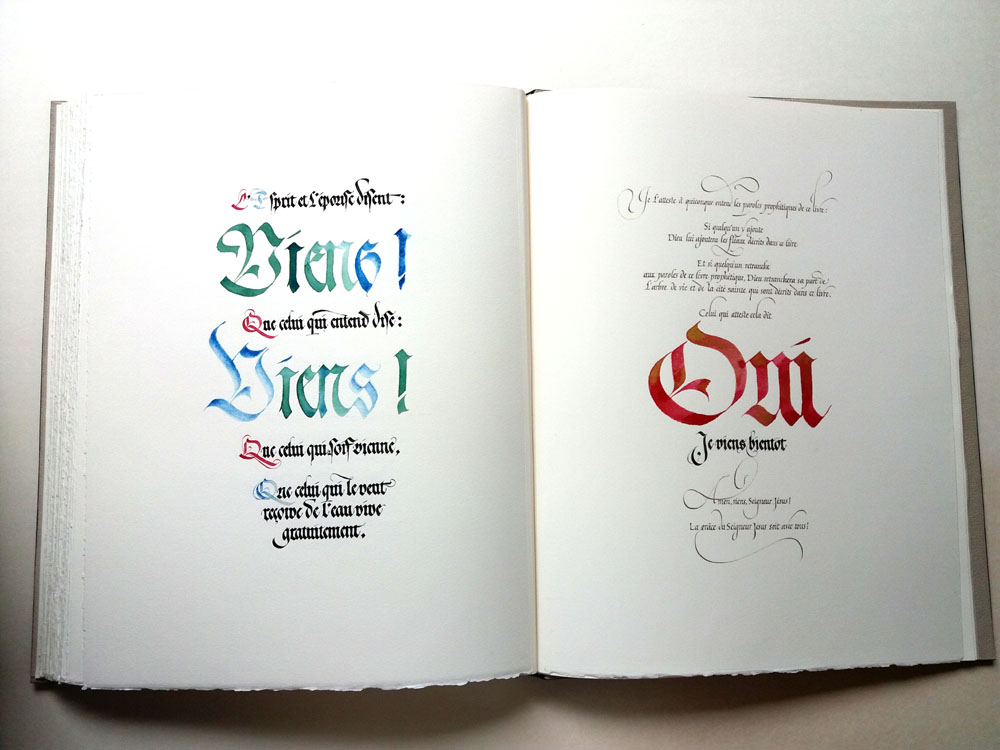 L'Esprit et l'épouse disent :
Viens !
Que celui qui entend dise :
Viens !
Que celui qui soif vienne,
Que celui qui le veut
reçoive de l'eau vive
gratuitement.
Je l'atteste à quiconque entend les paroles prophétiques de ce livre :
Si quelqu'un y ajoute
Dieu lui ajoutera les fléaux décrits dans ce livre.
Et si quelqu'un retranche
aux paroles de ce livre prophétique, Dieu retranchera sa part de
l'arbre de vie et de la cité sainte qui sont décrits dans ce livre.
Celui qui atteste cela dit
Oui
Je viens bientôt
Amen, viens, Seigneur Jésus !
La grâce du Seigneur Jésus soit avec tous !